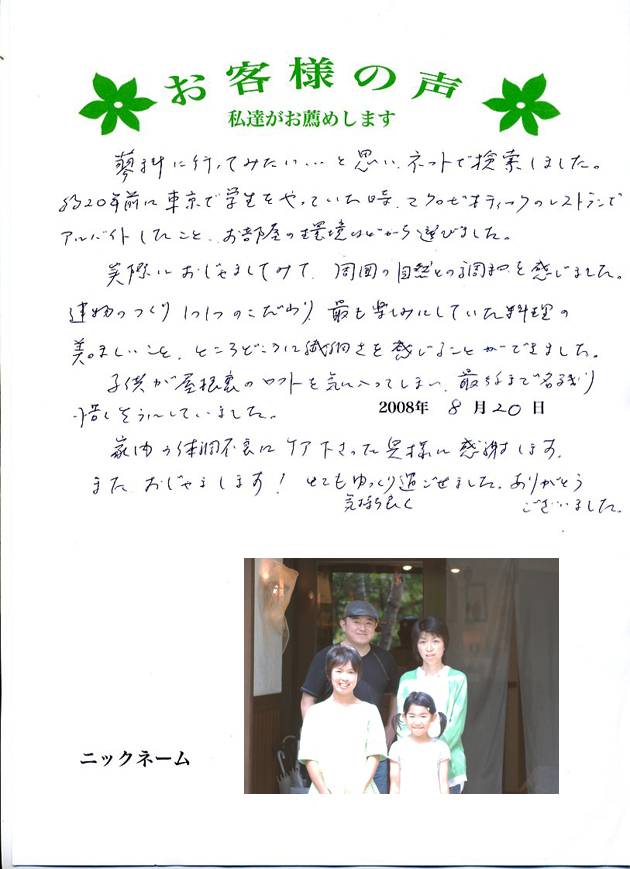 お客様の声
私達がお薦めします
蓼科に行ってみたい…と思い、ネットで検索しました。
約20年前に東京で学生をやっていた時、マクロビオティックのレストランで
アルバイトしたこと、お部屋の環境などから選びました。
実際におじゃましてみて、周囲の自然との調和を感じました。
建物のつくり1つ1つのこだわり 最も楽しみにしていた料理の
美味しいこと、ところどころに繊細さを感じることができました。
子供が屋根裏のロフトを気に入ってしまい、最後まで名残り
惜しそうにしていました。
2008年 8月20日
家内の体調不良にケア下さった奥様に感謝します。
また、おじゃまします! とてもゆっくり過ごせました。ありがとう
気持ち良く ございました。
ニックネーム